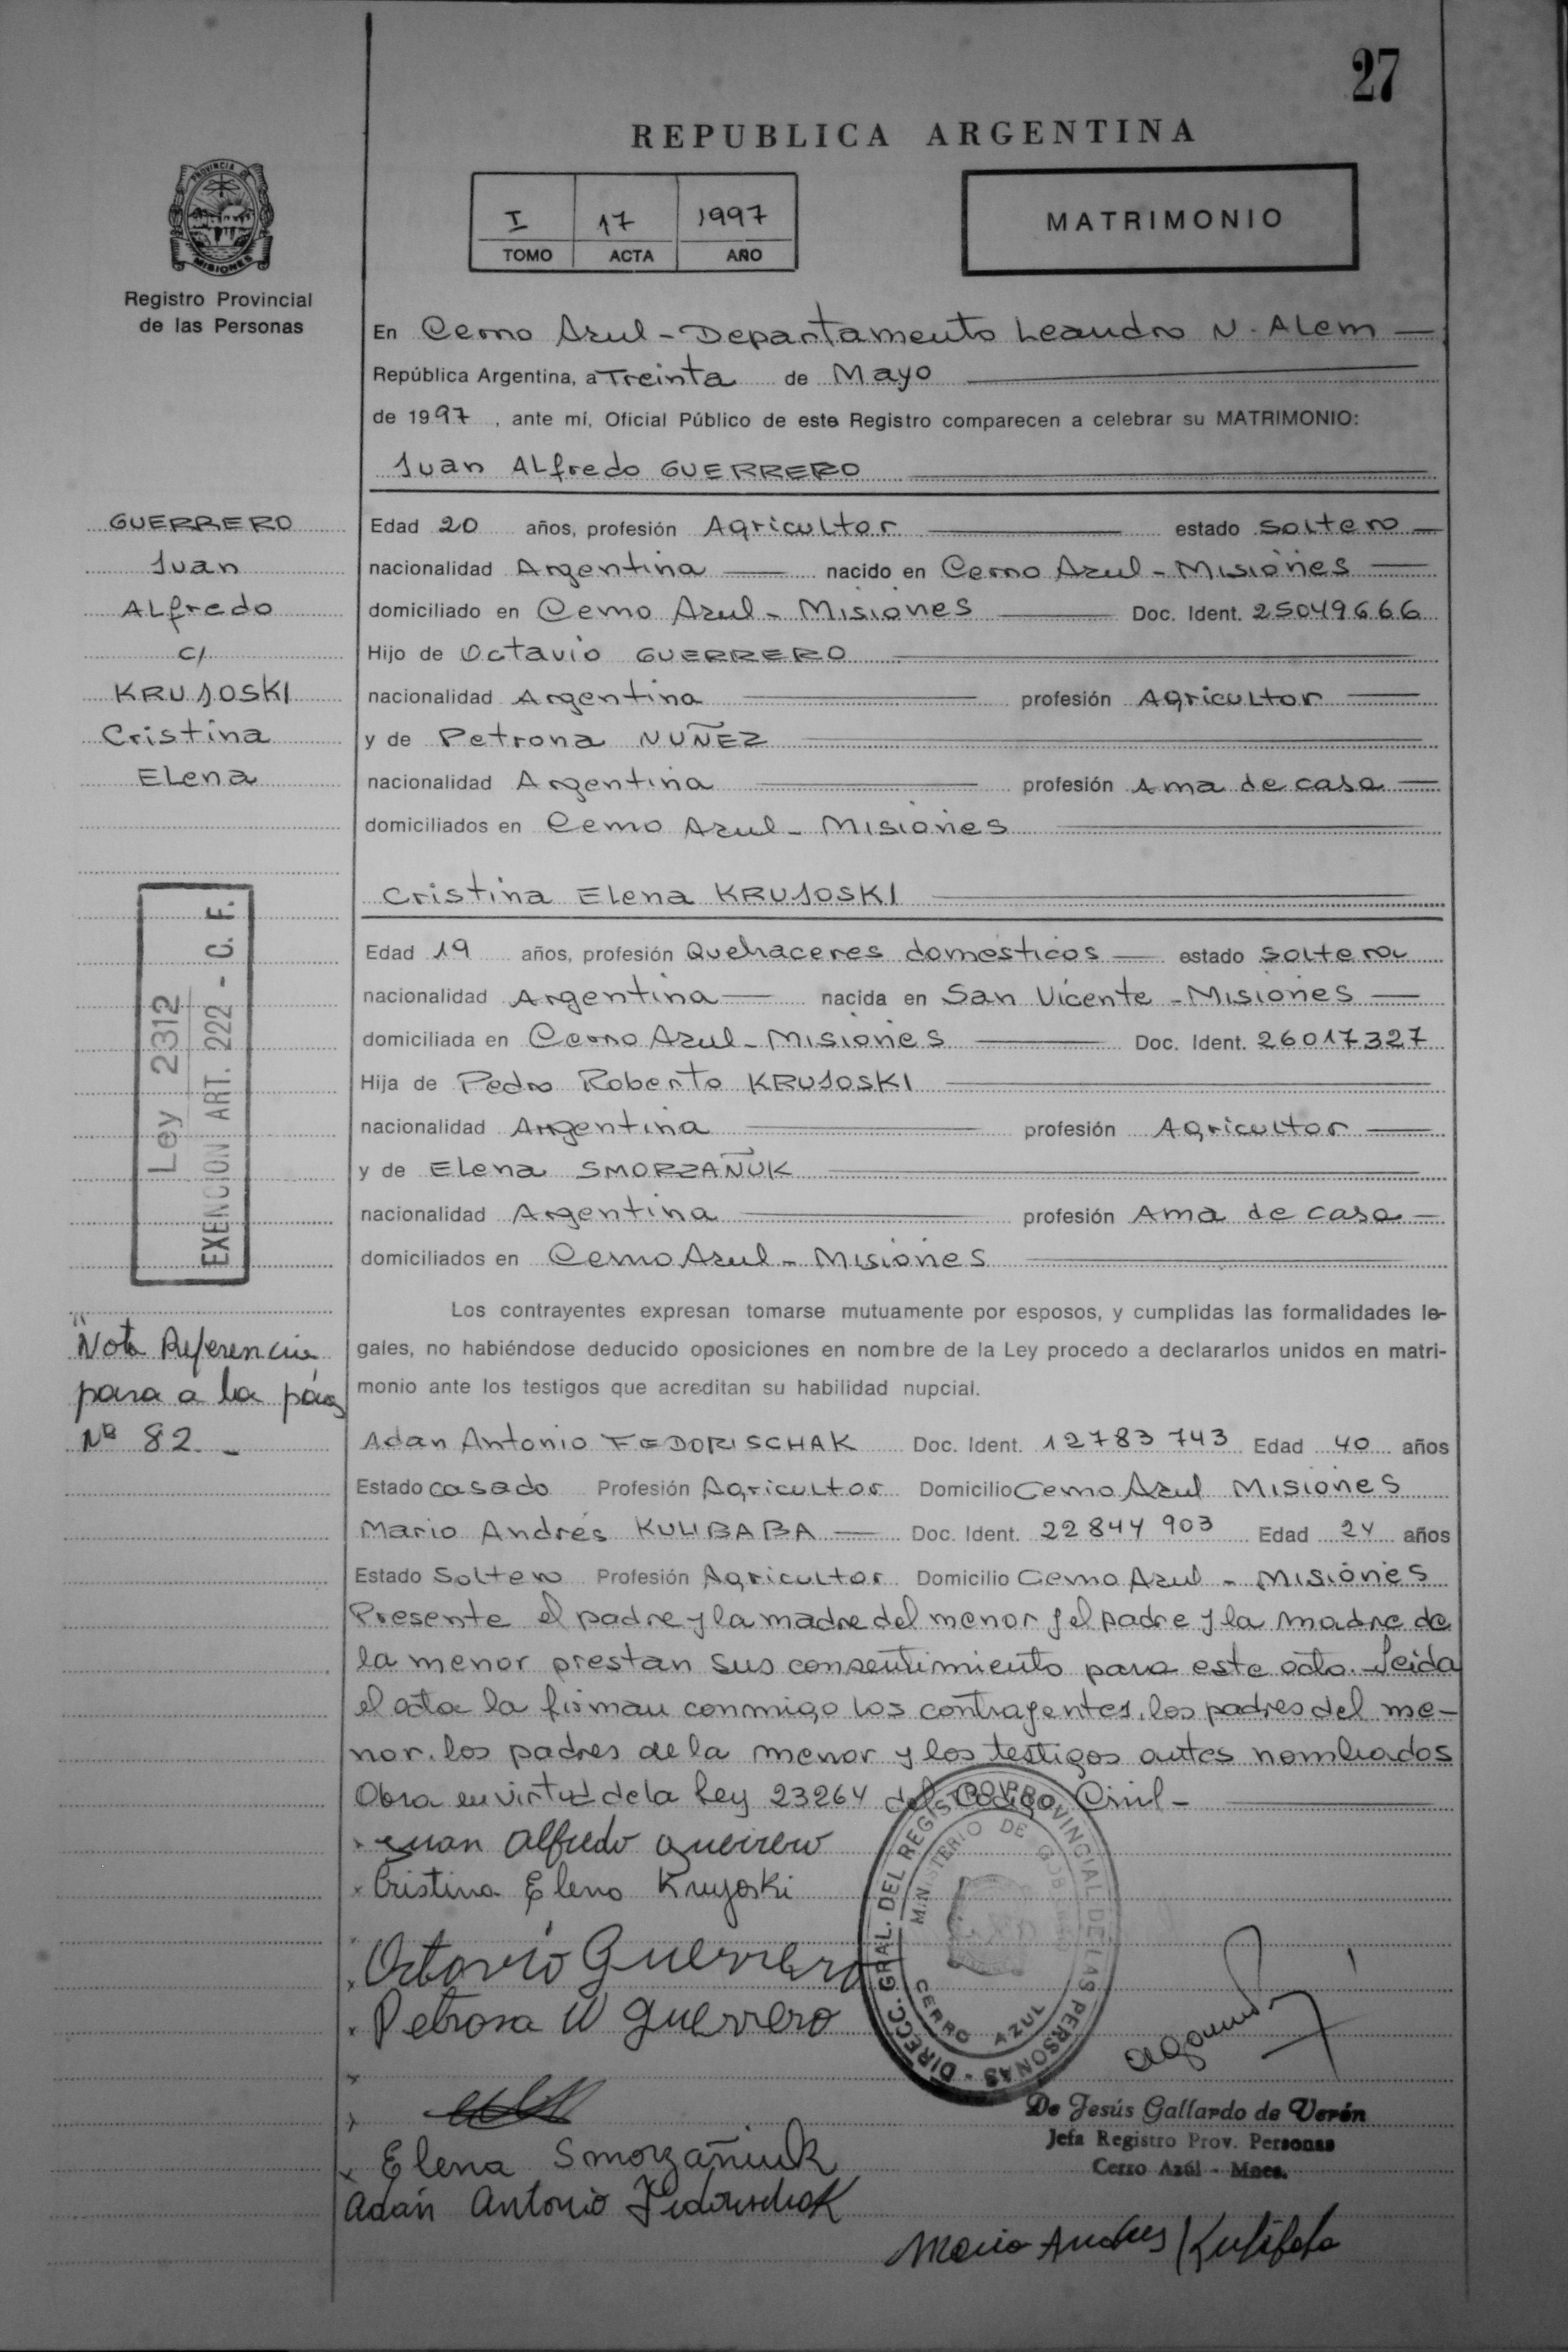 27
REPUBLICA ARGENTINA
PROVINCIA DE
MISIONES
Registro Provincial
de las Personas
I 17 1997
TOMO ACTA AÑO
MATRIMONIO
En Cerro Azul - Departamento Leandro N. Alem
República Argentina, a Treinta de Mayo
de 1997, ante mí, Oficial Público de este Registro comparecen a celebrar su MATRIMONIO:
Juan Alfredo GUERRERO
GUERRERO
Juan
Alfredo
c/
KRUJOSKI
Cristina
Elena
Edad 20 años, profesión Agricultor estado soltero
nacionalidad Argentina nacido en Cerro Azul - Misiones
domiciliado en Cerro Azul - Misiones Doc. Ident. 25049666
Hijo de Octavio GUERRERO
nacionalidad Argentina profesión Agricultor
y de Petrona NUÑEZ
nacionalidad Argentina profesión Ama de casa
domiciliados en Cerro Azul - Misiones
Cristina Elena KRUJOSKI
Edad 19 años, profesión Quehaceres domésticos estado soltera
nacionalidad Argentina nacida en San Vicente - Misiones
domiciliada en Cerro Azul - Misiones Doc. Ident. 26017327
Hija de Pedro Roberto KRUJOSKI
nacionalidad Argentina profesión Agricultor
y de Elena SMORZAÑUK
nacionalidad Argentina profesión Ama de casa
domiciliados en Cerro Azul - Misiones
Ley 2312
EXENCION ART. 222 - C. F.
"Nota Referencia
para a la pág
Nº 82 -
Los contrayentes expresan tomarse mutuamente por esposos, y cumplidas las formalidades le-
gales, no habiéndose deducido oposiciones en nombre de la Ley procedo a declararlos unidos en matri-
monio ante los testigos que acreditan su habilidad nupcial.
Adan Antonio FEDORISCHAK Doc. Ident. 12783743 Edad 40 años
Estado casado Profesión Agricultor Domicilio Cerro Azul Misiones
Mario Andrés KULIBABA Doc. Ident. 22844903 Edad 24 años
Estado Soltero Profesión Agricultor Domicilio Cerro Azul - Misiones
Presente el padre y la madre del menor y el padre y la madre de
la menor prestan sus consentimiento para este acto. Leida
el acta la firman conmigo los contrayentes, los padres del me-
nor, los padres de la menor y los testigos antes nombrados
Obra en virtud de la Ley 23264 del Código Civil -
Juan Alfredo Guerrero
Cristina Elena Krujoski
Octavio Guerrero
Petrona N Guerrero
Elena Smorzañiuk
Adán Antonio Fedorischak
DIRECC. GRAL. DEL REGISTRO PROVINCIAL DE LAS PERSONAS
MINISTERIO DE GOBIERNO
CERRO AZUL
De Jesús Gallardo de Verón
Jefa Registro Prov. Personas
Cerro Azúl - Mnes.
Mario Andres Kulibaba